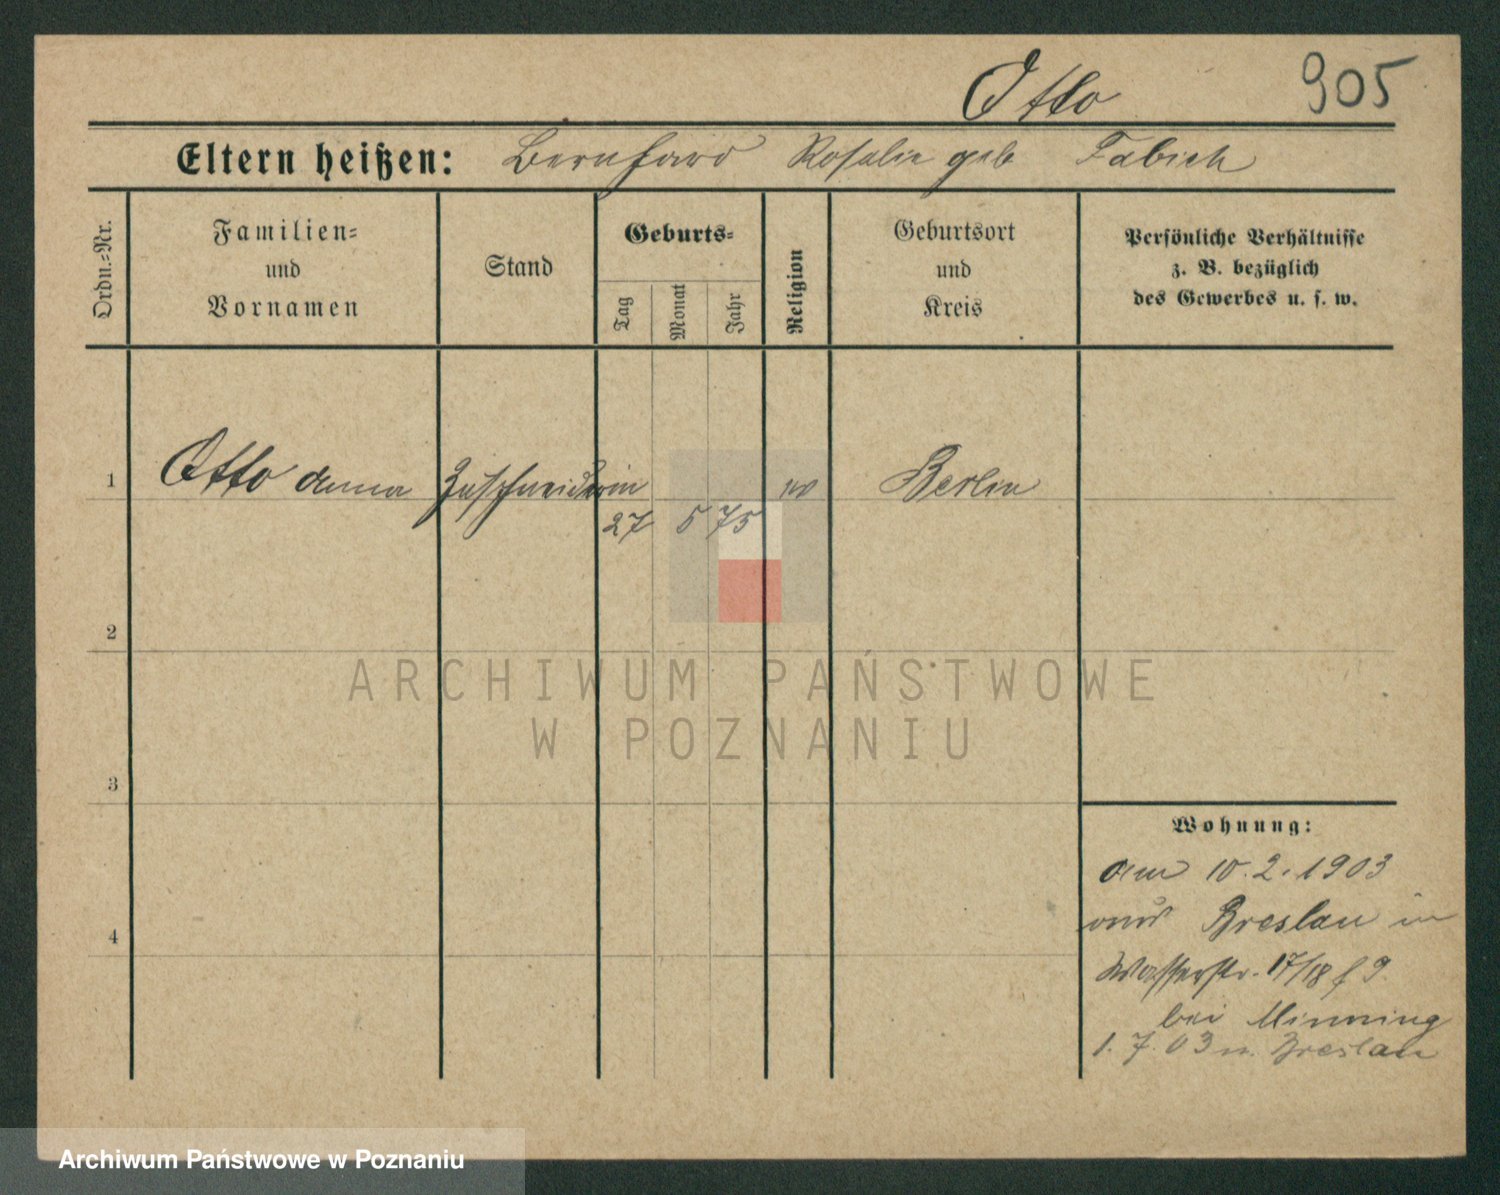 Otto 905
Eltern heißen: Bernhard Rosalie geb Fabich
Ordn.-Nr.
Familien-
und
Vornamen
Stand
Geburts-
Tag
Monat
Jahr
Religion
Geburtsort
und
Kreis
Persönliche Verhältnisse
z. B. bezüglich
des Gewerbes u. s. w.
1 Otto Anna Zuschneiderin Berlin
27 5 75
2
ARCHIWUM PAŃSTWOWE
W POZNANIU
3
Wohnung:
am 10.2.1903
aus Breslau in
4
Wasserstr. 17/18 9
bei Minning
1.7.03 n. Breslau
Archiwum Państwowe w Poznaniu